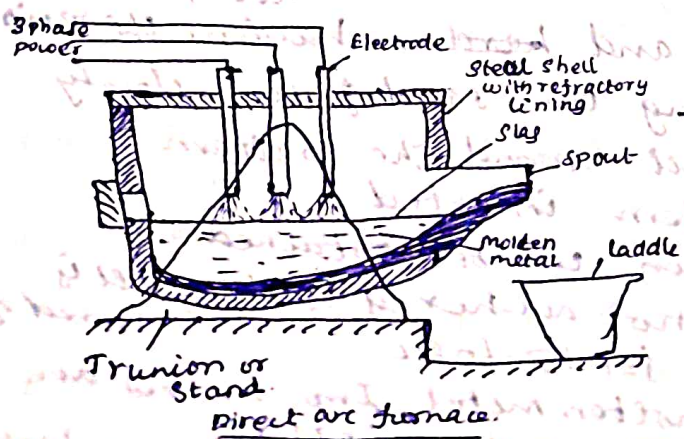 3phase
power
Electrode
Steal shell
with refractory
lining
Slag
Spout
Molden
metal
Laddle
Trunion or
Stand.
Direct arc furnace.